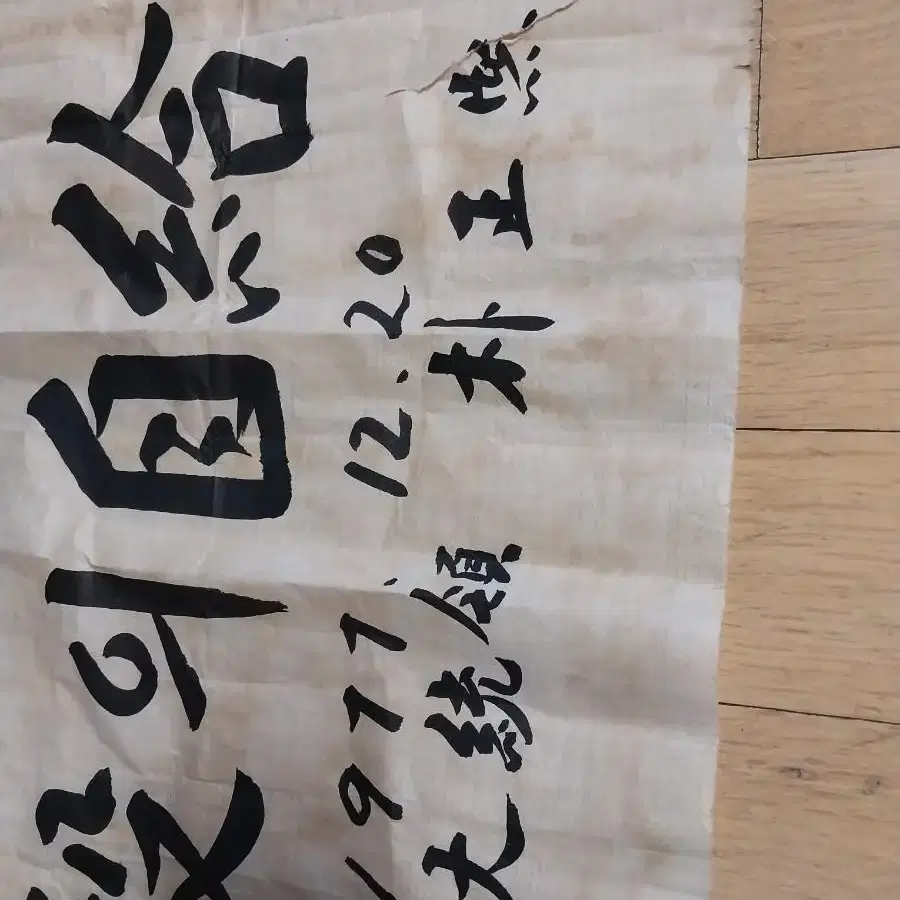 의 自給
1977. 12. 20
大統領 朴正熙